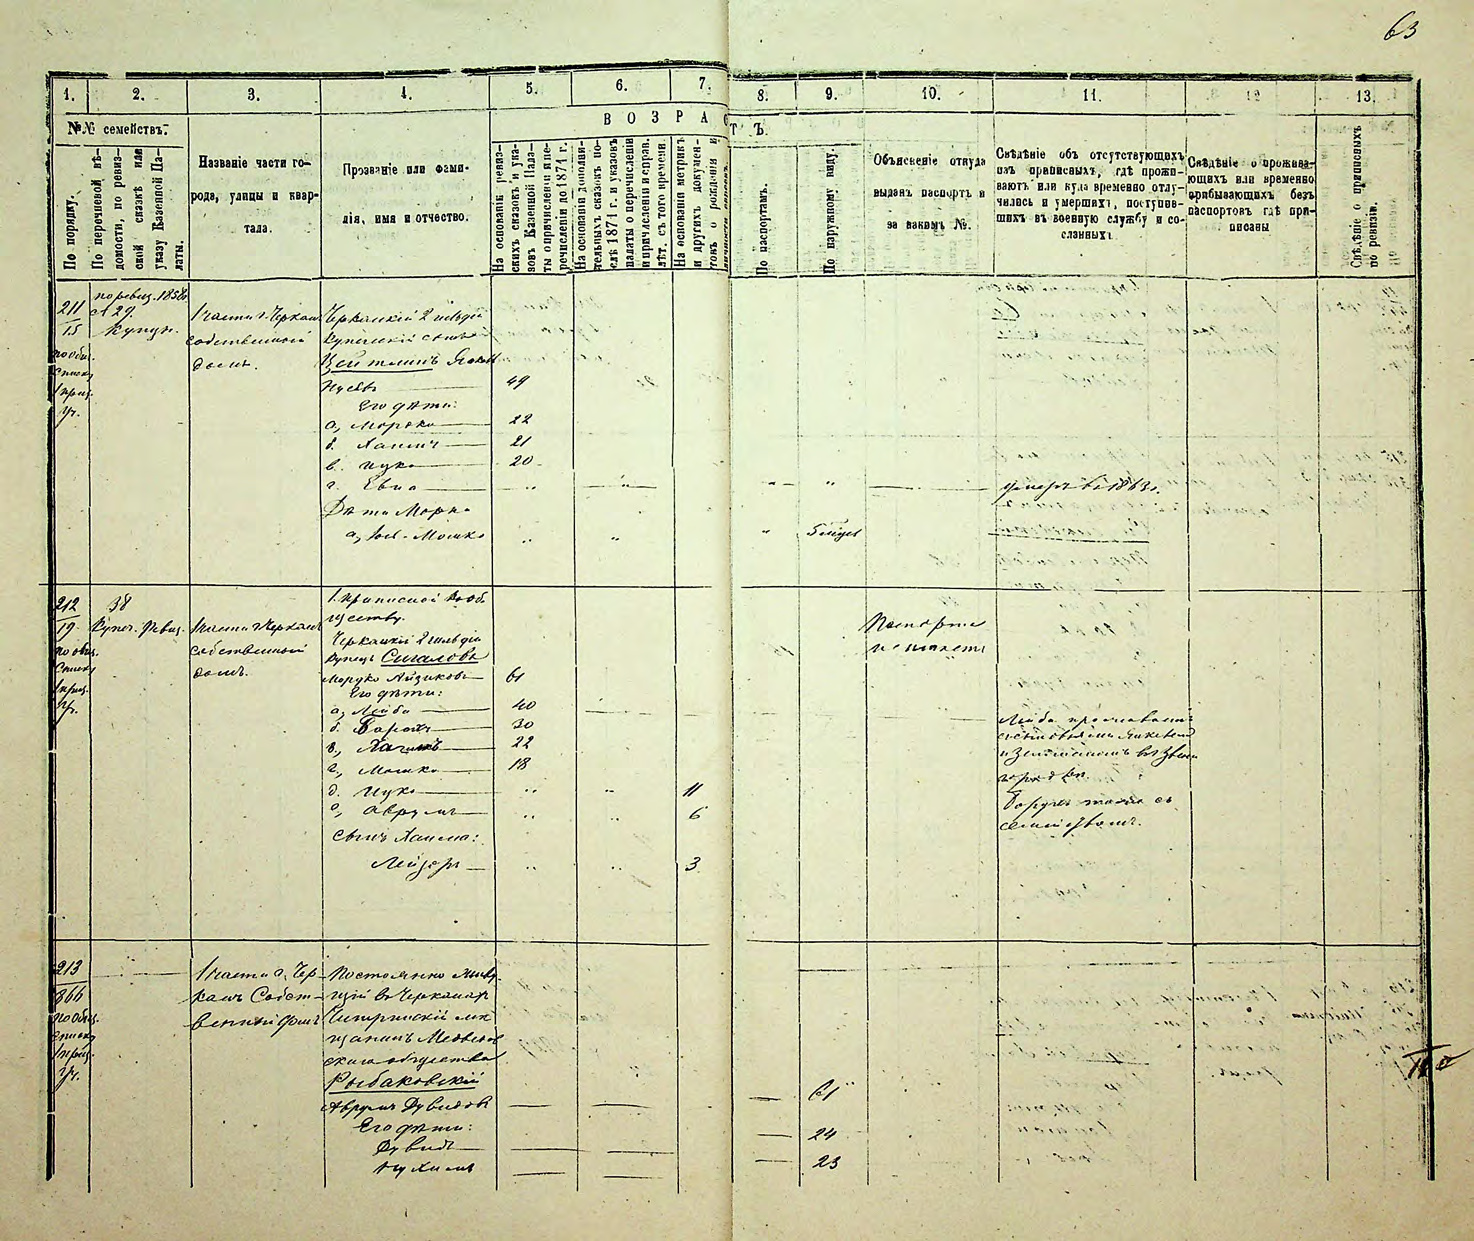 63
1. 2. 3. 4. 5. 6. 7. 8. 9. 10. 11. 12 13.
№№ семействъ.
ВОЗРАСТЪ.
По порядку.
По перечневой вѣ-
домости, по ревиз-
ской сказкѣ или
указу Казенной Па-
латы.
Названіе части го-
рода, улицы и квар-
тала.
Прозваніе или фами-
лія, имя и отчество.
На основаніи ревиз-
скихъ сказокъ и ука-
зовъ Казенной Пала-
ты о причисленіи и пе-
речисленіи до 1871 г.
На основаніи дополни-
тельныхъ сказокъ по-
слѣ 1871 г. и указовъ
палаты о перечисленіи
и причисленіи и справ.
лѣт. съ того времени.
На основаніи метрикъ
и другихъ докумен-
товъ о рожденіи и
По паспортамъ.
По наружному виду.
Объясненіе откуда
выданъ паспортъ и
за какимъ №.
Свѣдѣніе объ отсутствующихъ
изъ приписныхъ, гдѣ прожи-
ваютъ или куда временно отлу-
чились и умершихъ, поступив-
шихъ въ военную службу и со-
сланныхъ
Свѣдѣніе о прожива-
ющихъ или временно
прибывающихъ безъ
паспортовъ гдѣ при-
писаны
Свѣдѣніе о приписныхъ
по ревизіи.
211
15
по общ.
списку
1 приз.
уч.
по ревиз. 1858
№ 29.
купеч.
1 части г. Черкас
собственный
домъ.
Черкаскій 2 гильдіи
купеческій сынъ
Цейтлинъ
49
Его дѣти:
а, Мордко 22
б. Хаимъ 21
в. Ицко 20
г. умеръ въ 1863 г.
Дѣти Мордко
а, Мошко
212
19
по общ.
списку
1 приз.
уч.
38
Купеч. Ревиз.
1 части г. Черкас
собственный
домъ.
1. приписной къ об
ществу.
Черкаскій 2 гильдіи
купецъ Сигаловъ
Мордко Айзиковъ 61
Его дѣти:
а, Лейба 40
б. Борохъ 30
в, Хаимъ 22
г, Мошко 18
д. Ицко 11
е, Аврумъ 6
сынъ Хаима:
Лейзеръ 3
Паспорта
не имѣетъ
Лейба проживаетъ
городкѣ.
Борухъ также съ
семействомъ.
213
866
по общ.
списку
1 приз.
уч.
1 части г. Чер-
касъ Собст-
венный домъ
Постоянно живу-
щій въ Черкасахъ
Чигиринскій мѣ
щанинъ
скаго общества
Рыбаковскій
Аврумъ Дувидовъ 61
Его дѣти:
Дувидъ 24
Нухимъ 23